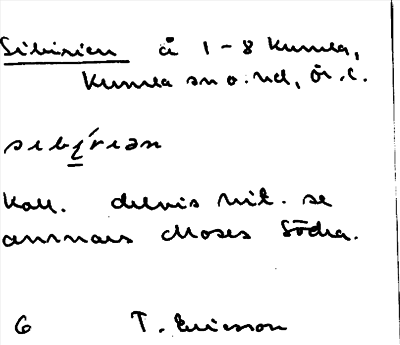 Sibirien å 1-8 Kumla,
Kumla sn o. hd, Ör. l.
sibi̱´rian
Kall. delvis mit. se
annars Moses Södra.
6 T. Ericsson